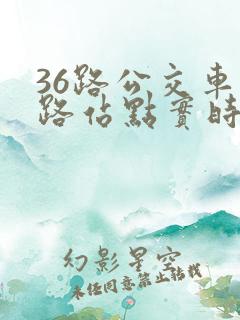 36路公交车
路站點實時
幻影星空
未经同意禁止转载